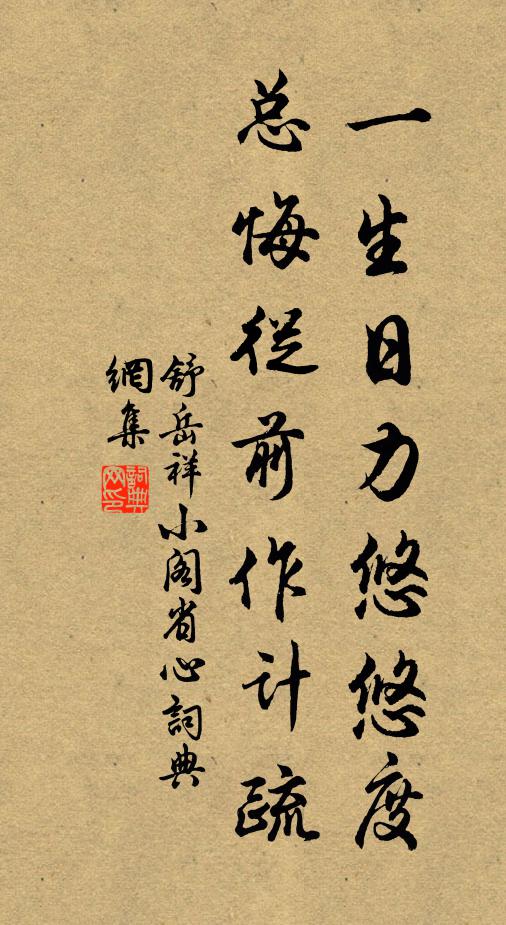 一生日力悠悠度
总悔從前作计疏
舒岳祥小阁省心詞典
網集
詞典網印